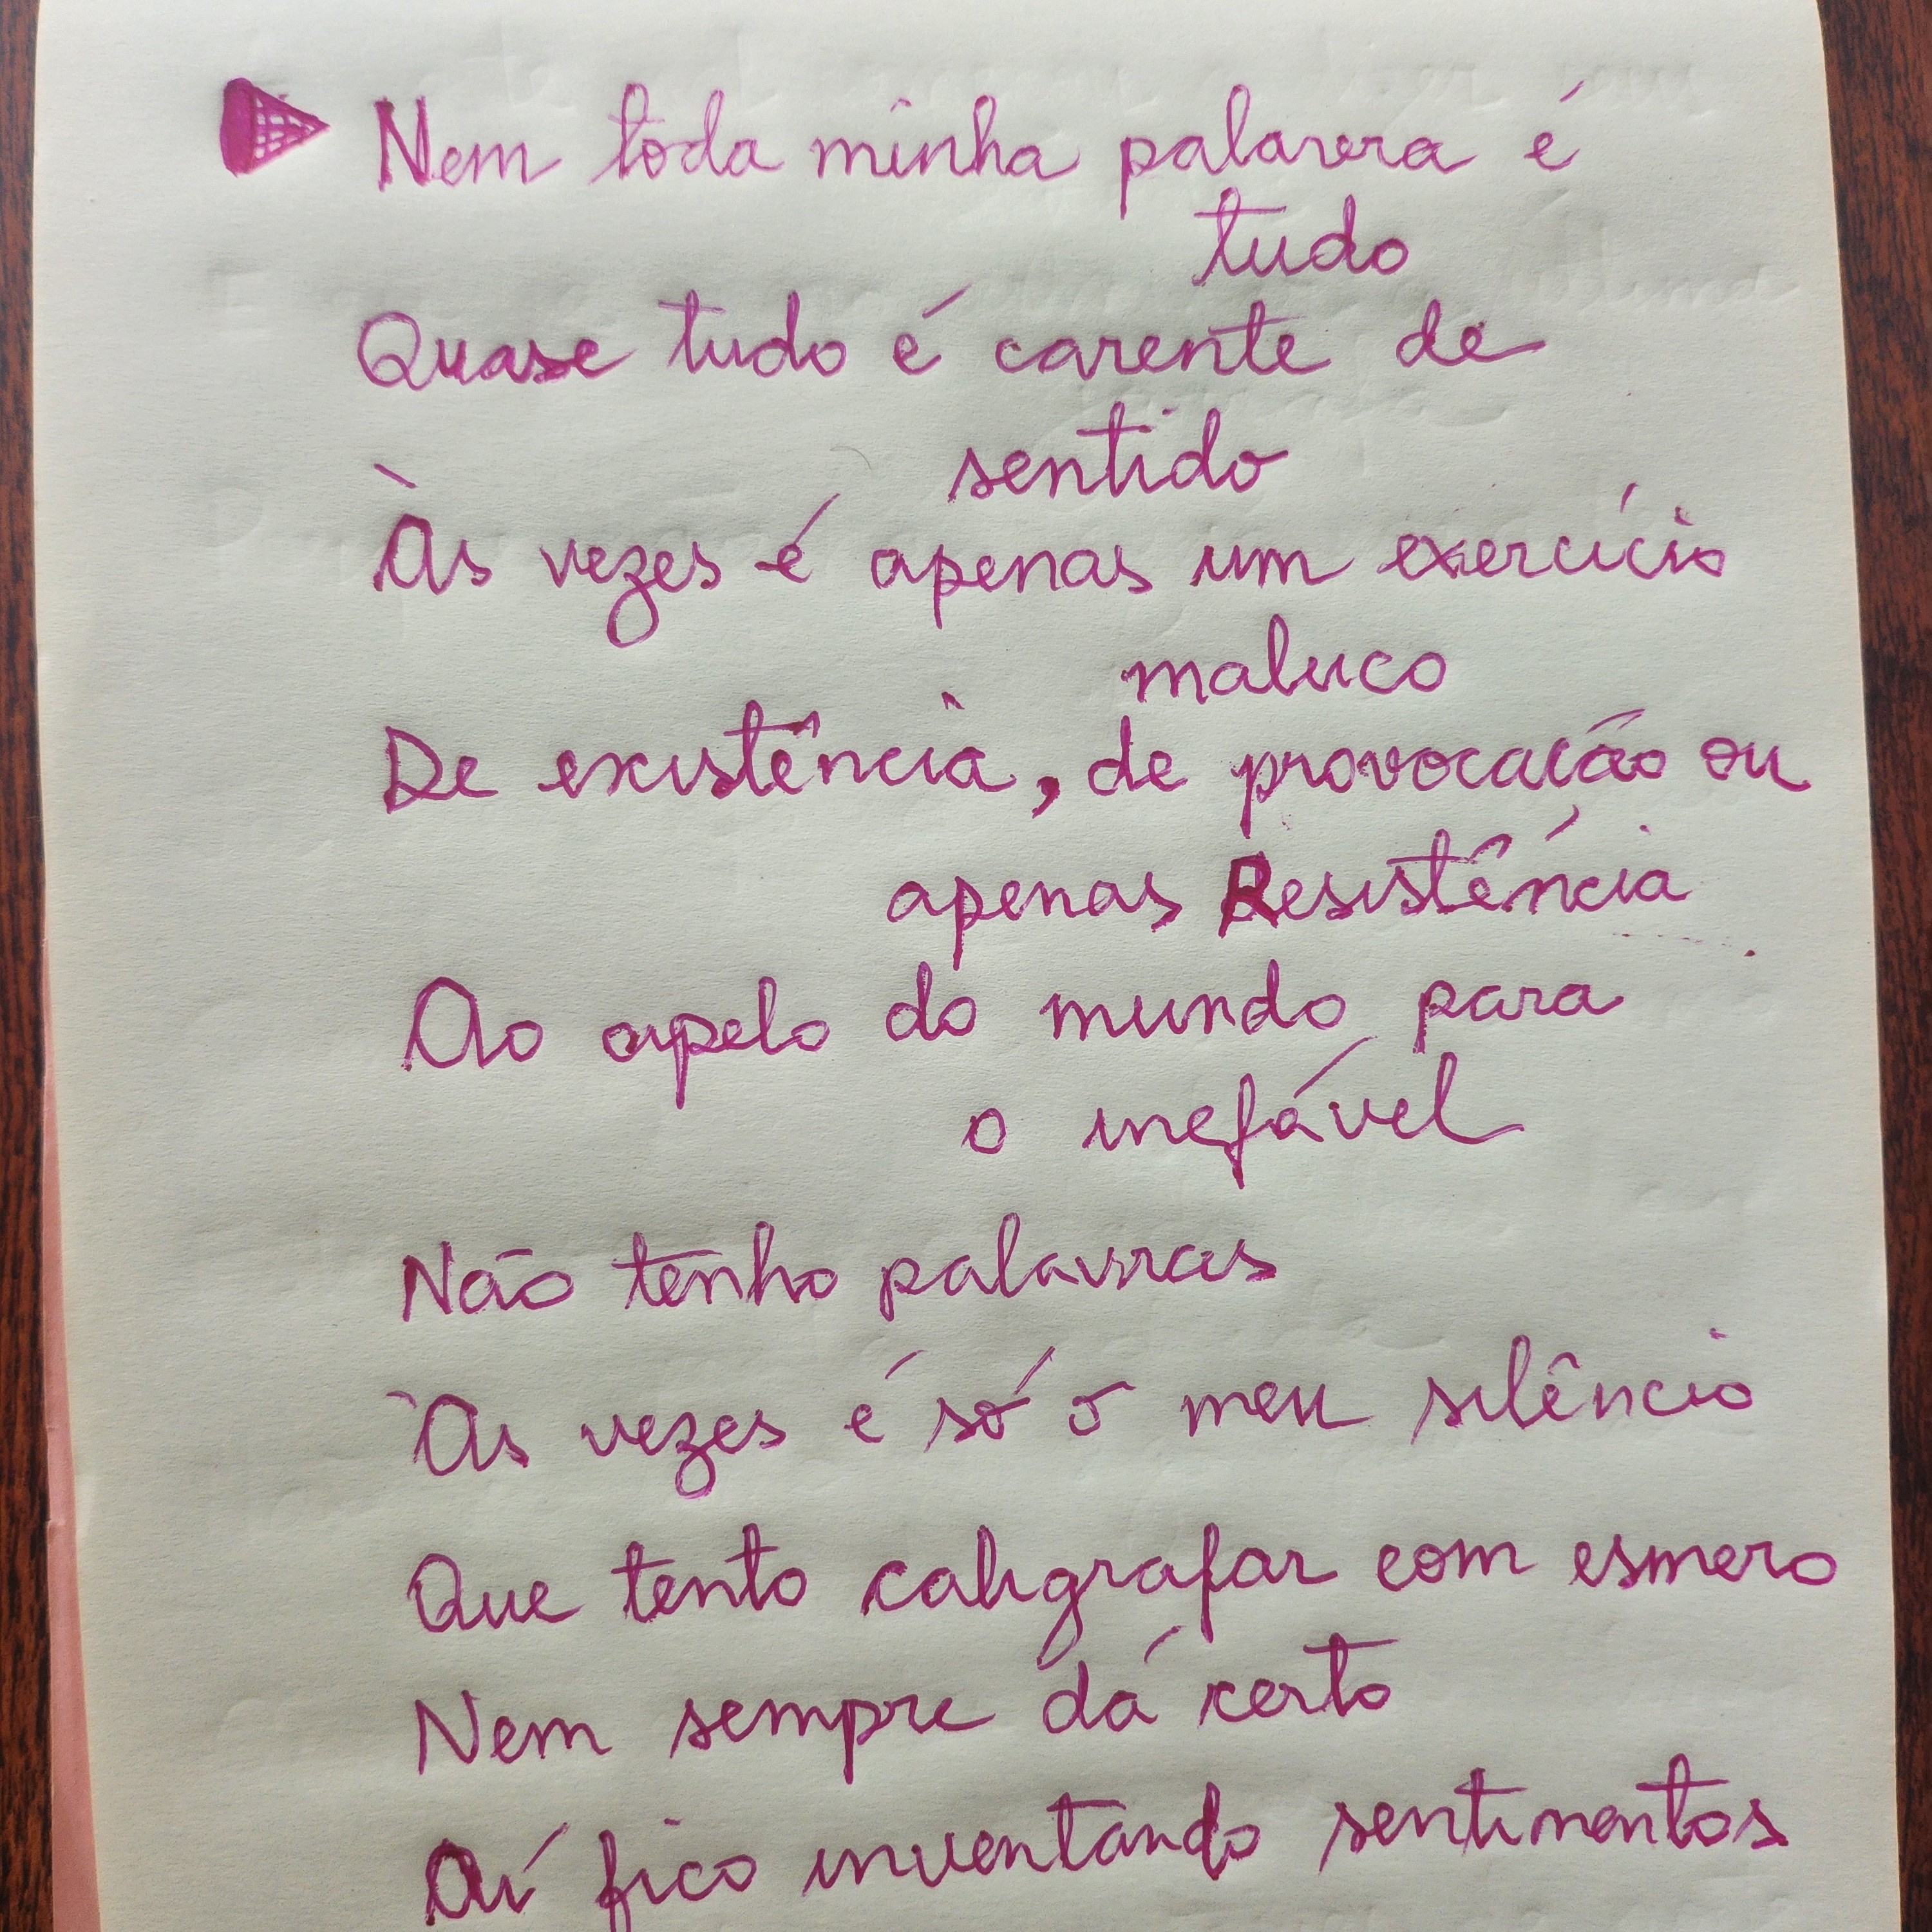 Nem toda minha palavra é
tudo
Quase tudo é carente de
sentido
Às vezes é apenas um exercício
maluco
De existência, de provocacão ou
apenas Resistência
Ao apelo do mundo para
o inefável
Não tenho palavras
Às vezes é só o meu silêncio
Que tento caligrafar com esmero
Nem sempre dá certo
Aí fico inventando sentimentos